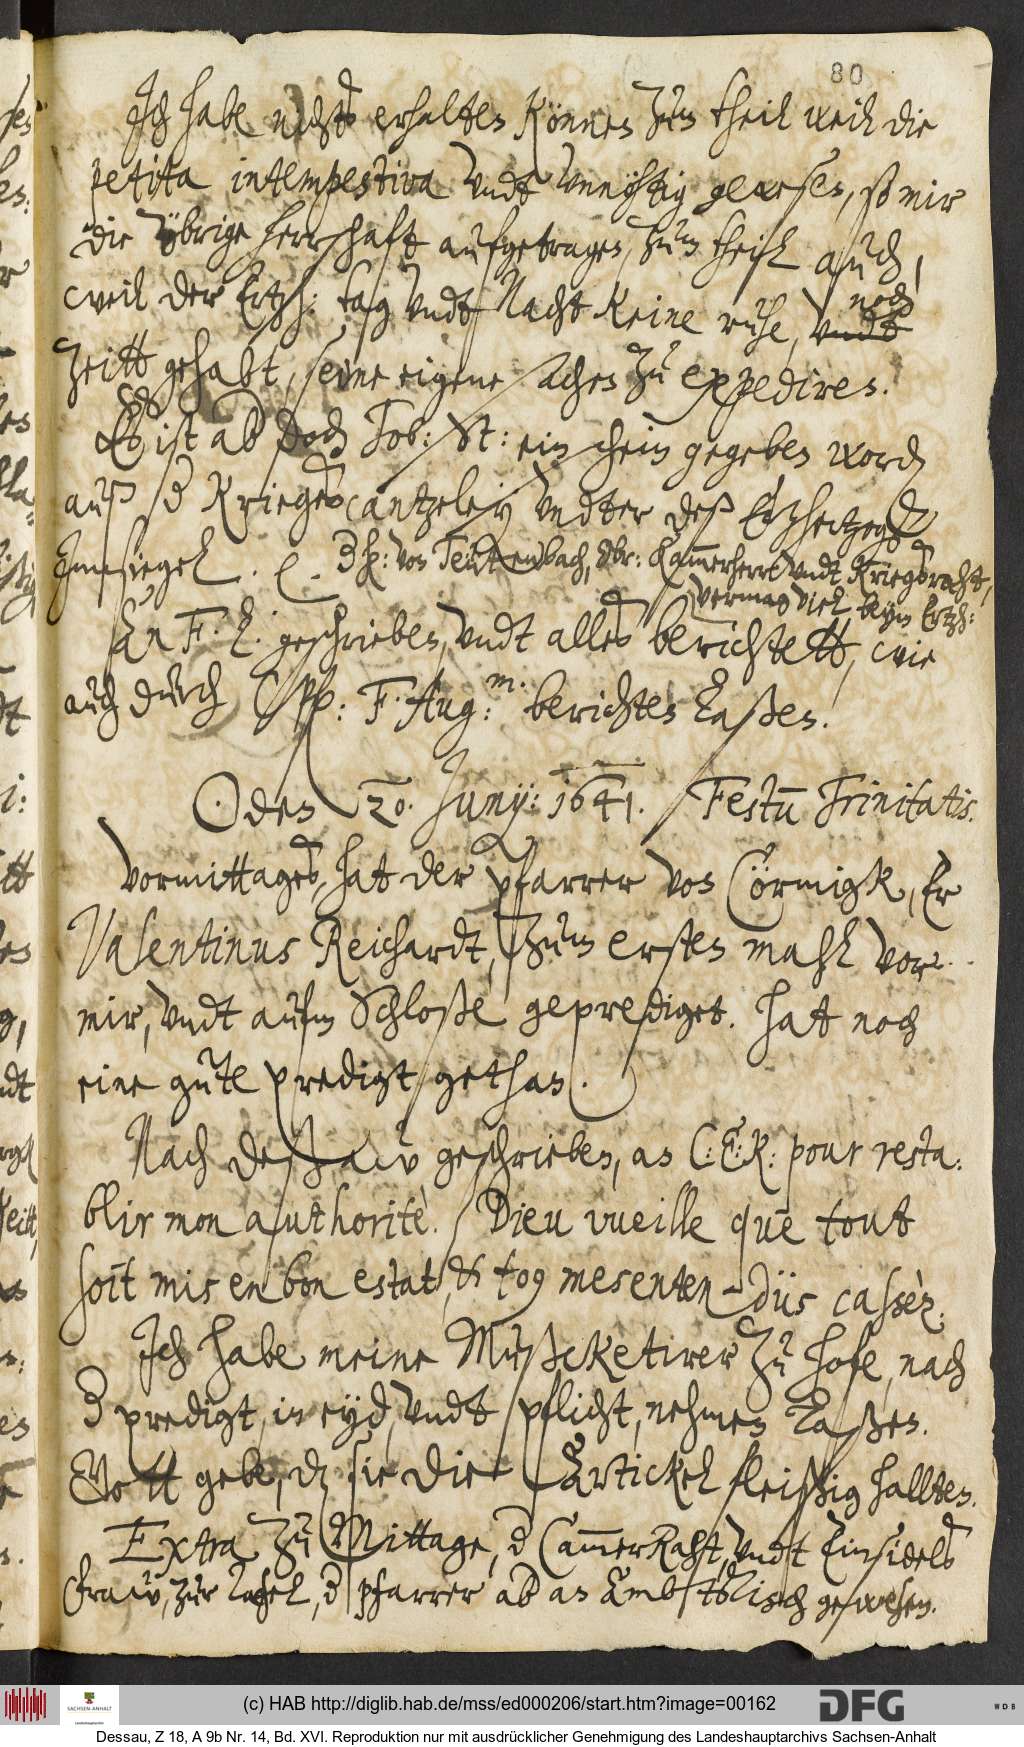 80
Ich habe nichts erhalten können zum theil weil die
petita intempestiva vndt vnnöhtig gewesen, so mir
die übrige herrschaft aufgetragen, zum theil auch,
weil der Ertzh: tag vndt Nacht keine ruhe, vndt noch
zeitt gehabt, seine eigene sachen zu expediren.
Es ist ab doch Tob: St: ein schein gegeben word
auß d Kriegscantzeley vndter deß Ertzhertzogs
Innsiegel. von Teuffenbach, Obr: Kammerherr vndt Kriegsraht,
vermag viel beym Ertzh:
An F. L. geschrieben, vndt alles berichtett, wie
auch durch F. Aug: m. berichten laßen.
den 20. Junij: 1641. Festū Trinitatis.
Vormittages, hat der pfarrer von Cörmigk, Er
Valentinus Reichardt, zum ersten mahl vor
mir, vndt aufm Schloße geprediget. hat noch
eine gute predigt gethan.
Nach Deßaw geschrieben, an C: E: K: pour resta:
blir mon authoritè. Dieu vueille que tout
soit mis en bon estat, & to9 mesenten-
düs cassèz.
Ich habe meine Mußcketirer zu hofe, nach
d predigt, in eyd, vndt pflicht, nehmen laßen.
Gott gebe, dz sie die Artickel fleißig hallten.
Extra zu Mittage, d CammerRaht, vndt Einsidels
fraw, zur Tafel, d pfarrer ab an Ambtstisch gewesen.
(c) HAB http://diglib.hab.de/mss/ed000206/start.htm?image=00162
SACHSEN-ANHALT
DFG
WDB
Dessau, Z 18, A 9b Nr. 14, Bd. XVI. Reproduktion nur mit ausdrücklicher Genehmigung des Landeshauptarchivs Sachsen-Anhalt